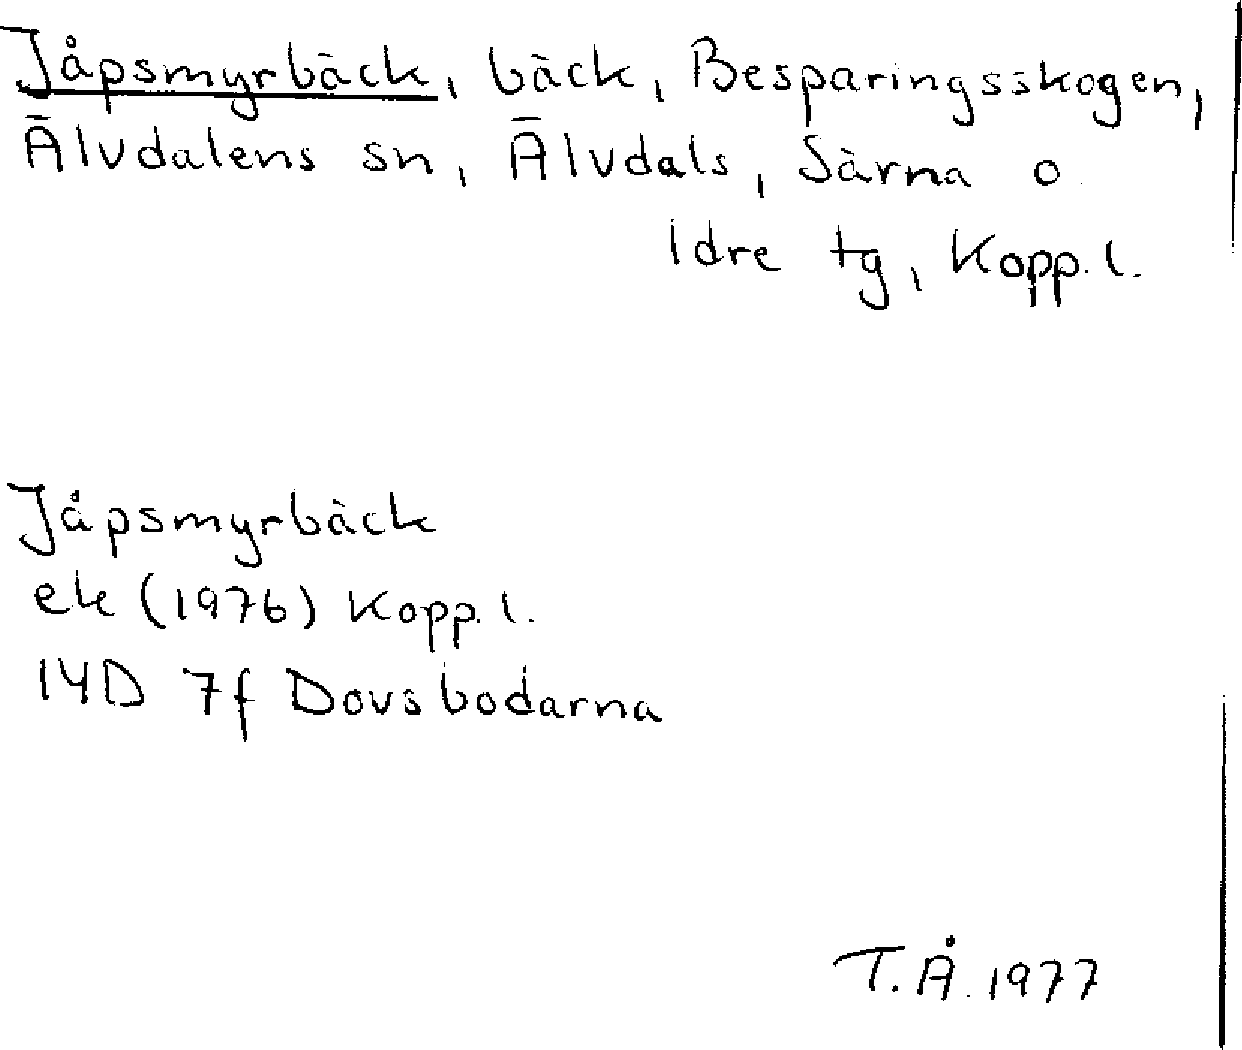 Jåpsmyrbäck, bäck, Besparingsskogen,
Älvdalens sn, Älvdals, Särna o
Idre tg, Kopp. l.
Jåpsmyrbäck
ek (1976) Kopp. l.
14D 7f Dovsbodarna
T.Å. 1977